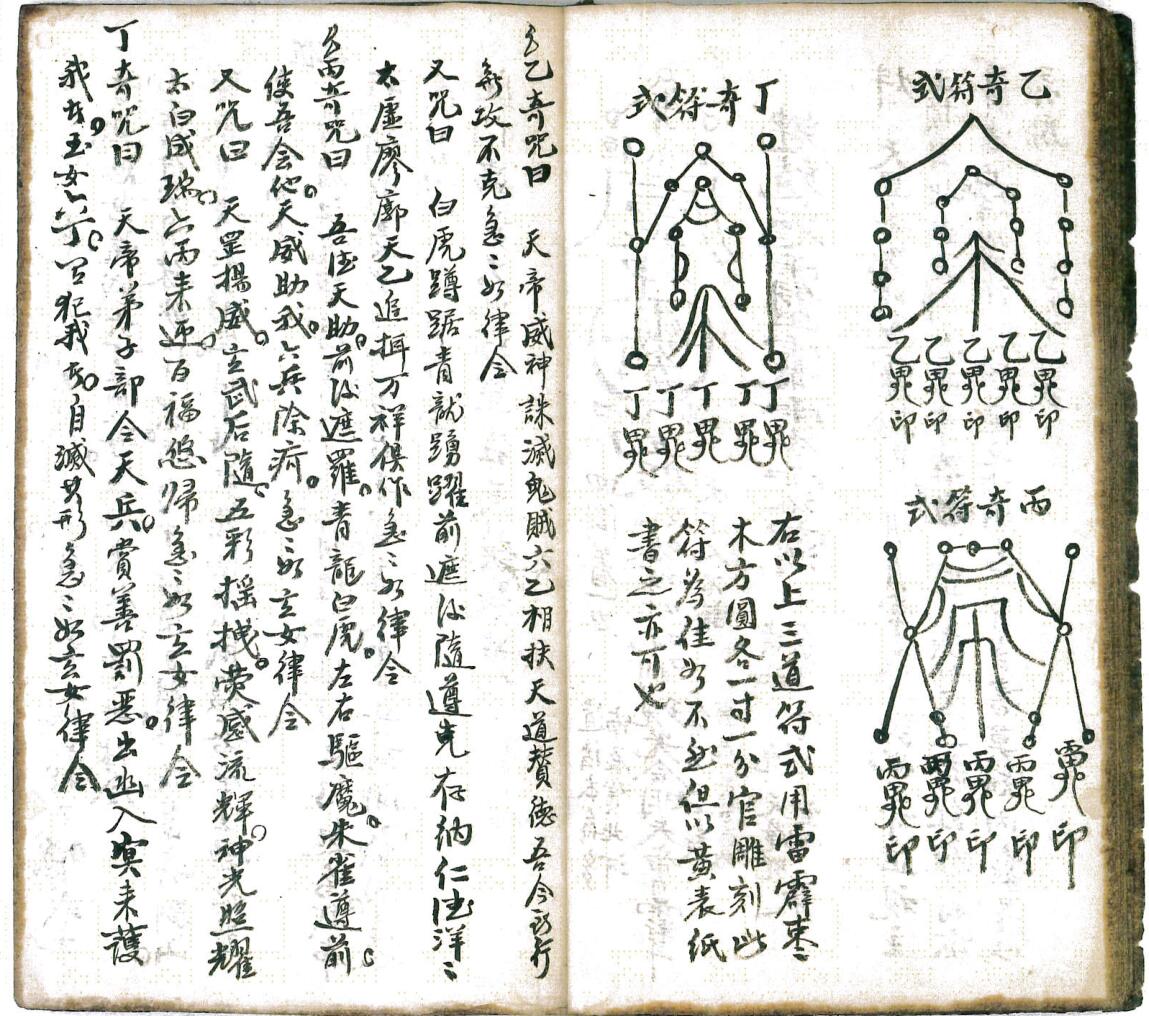 乙奇符式
乙乙乙乙乙
印印印印印
丙奇符式
丙丙丙丙丙
印印印印印
丁奇符式
丁丁丁丁丁
右以上三道符式用雷霹枣
木方圓各一寸一分官雕刻此
符為佳如不然但以黃表紙
書之亦可也
乙奇咒曰 天帝威神誅滅鬼賊六乙相扶天道賛德吾今所行
無攻不克急〻如律令
又咒曰 白虎蹲踞青龍踴躍前遮後隨遵先存納仁德洋〻
太虛廖廓天乙追捕万祥俱作急〻如律令
丙奇咒曰 吾德天助前後遮羅青龍白虎左右驅魔朱雀遵前
使吾会他天威助我六兵除疴急〻如玄女律令
又咒曰 天罡揚威玄武后隨五彩摇拽荧惑流輝神光照耀
太白成瑞六丙来迎百福悠归急〻如玄女律令
丁奇咒曰 天帝弟子部令天兵賞善罰惡出幽入冥来護
我者玉女六丁若犯我者自滅其形急〻如玄女律令